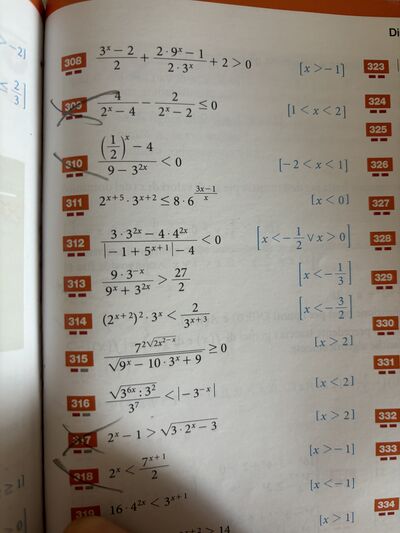 Di
308 (3^x − 2)/2 + (2 · 9^x − 1)/(2 · 3^x) + 2 > 0 [x > −1] 323
309 4/(2^x − 4) − 2/(2^x − 2) ≤ 0 [1 < x < 2] 324
325
310 ((1/2)^x − 4)/(9 − 3^(2x)) < 0 [−2 < x < 1] 326
311 2^(x+5) · 3^(x+2) ≤ 8 · 6^((3x−1)/x) [x < 0] 327
312 (3 · 3^(2x) − 4 · 4^(2x))/(|−1 + 5^(x+1)| − 4) < 0 [x < −1/2 ∨ x > 0] 328
313 (9 · 3^(−x))/(9^x + 3^(2x)) > 27/2 [x < −1/3] 329
314 (2^(x+2))^2 · 3^x < 2/3^(x+3) [x < −3/2] 330
315 7^(2√(2x^2−x))/√(9^x − 10 · 3^x + 9) ≥ 0 [x > 2] 331
316 √(3^(6x) : 3^2)/3^7 < |−3^(−x)| [x < 2]
317 2^x − 1 > √(3 · 2^x − 3) [x > 2] 332
318 2^x < 7^(x+1)/2 [x > −1] 333
319 16 · 4^(2x) < 3^(x+1) [x < −1]
> 14 [x > 1] 334